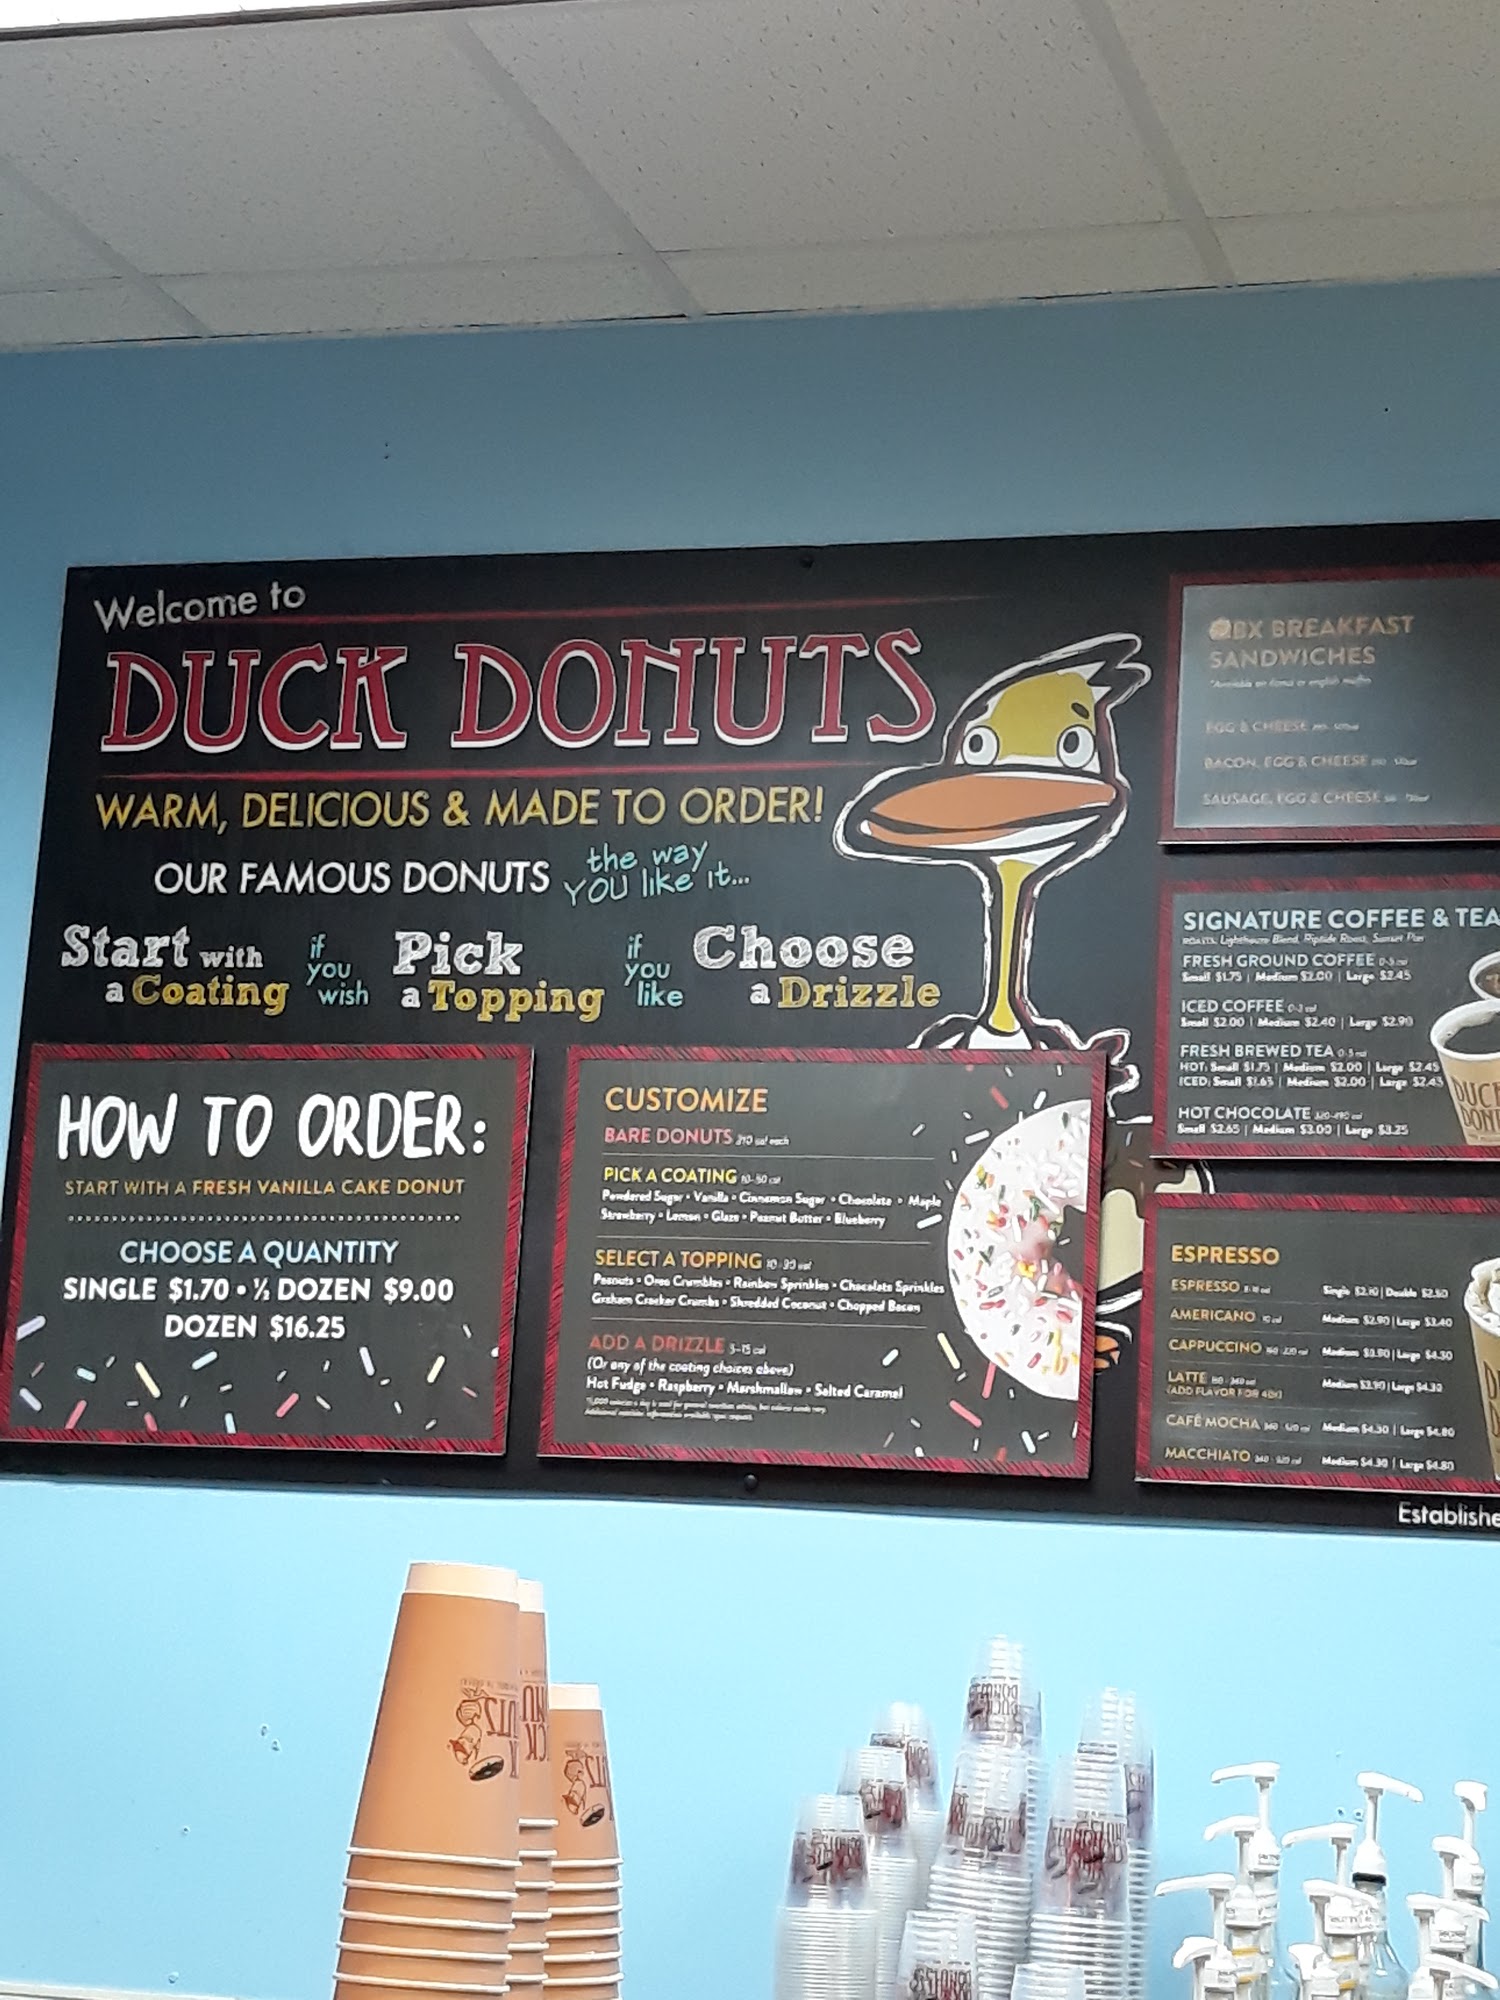 Welcome to
DUCK DONUTS
WARM, DELICIOUS & MADE TO ORDER!
OUR FAMOUS DONUTS the way YOU like it...
Start with a Coating if you wish Pick a Topping if you like Choose a Drizzle
HOW TO ORDER:
START WITH A FRESH VANILLA CAKE DONUT
CHOOSE A QUANTITY
SINGLE $1.70 • ½ DOZEN $9.00
DOZEN $16.25
CUSTOMIZE
BARE DONUTS 210 cal each
PICK A COATING
Powdered Sugar • Vanilla • Cinnamon Sugar • Chocolate • Maple
Strawberry • Lemon • Glaze • Peanut Butter • Blueberry
SELECT A TOPPING 10-90 cal
Peanuts • Oreo Crumbles • Rainbow Sprinkles • Chocolate Sprinkles
Graham Cracker Crumbs • Shredded Coconut • Chopped Bacon
ADD A DRIZZLE 5-15 cal
(Or any of the coating choices above)
Hot Fudge • Raspberry • Marshmallow • Salted Caramel
OBX BREAKFAST
SANDWICHES
*Available on donut or english muffin
EGG & CHEESE
BACON, EGG & CHEESE
SAUSAGE, EGG & CHEESE
SIGNATURE COFFEE & TEA
ROASTS: Lighthouse Blend, Riptide Roast, Sunset Pier
FRESH GROUND COFFEE 0-5 cal
Small $1.75 | Medium $2.00 | Large $2.45
ICED COFFEE
Small $2.00 | Medium $2.40 | Large $2.90
FRESH BREWED TEA 0-5 cal
HOT: Small $1.75 | Medium $2.00 | Large $2.45
ICED: Small $1.65 | Medium $2.00 | Large $2.45
HOT CHOCOLATE
Small $2.65 | Medium $3.00 | Large $3.25
ESPRESSO
ESPRESSO Single | Double
AMERICANO Medium $2.90 | Large $3.40
CAPPUCCINO Medium | Large $4.30
LATTE Medium $3.90 | Large $4.30
(ADD FLAVOR FOR 40¢)
CAFÉ MOCHA Medium $4.30 | Large $4.80
MACCHIATO Medium $4.30 | Large $4.80
Establishe